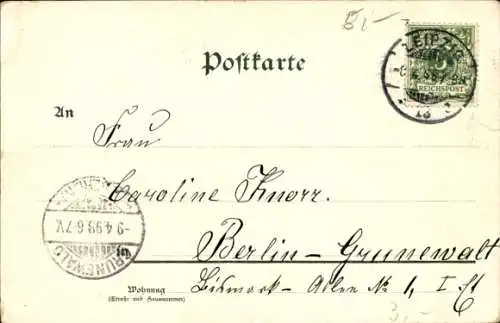 5,-
Postkarte
LEIPZIG
13
REICHSPOST
An
Frau
Caroline Knorr.
-9.4.98.6-7V.
GRUNEWALD
Berlin-Grunewalt
Wohnung
(Straße und Hausnummer)
Bismark-Allee No 1, I Et
3,-